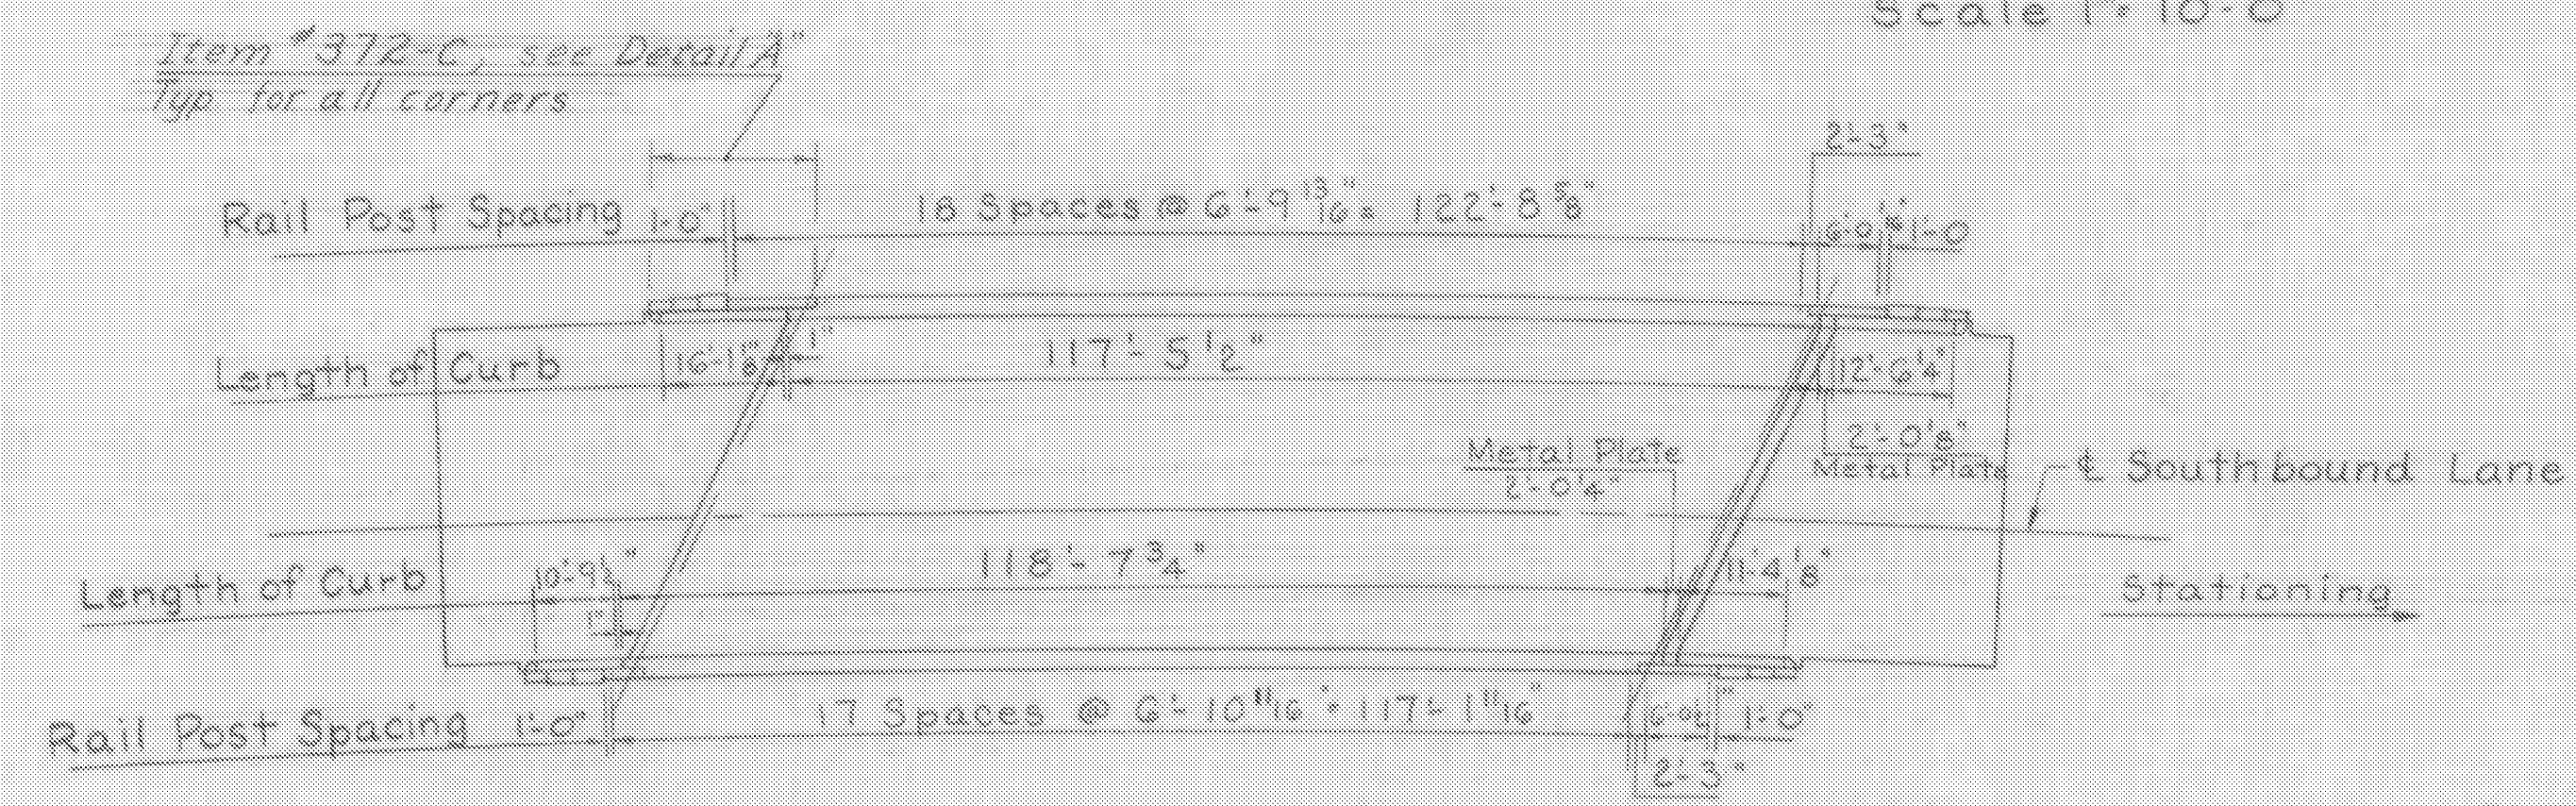 Scale 1"= 10'-0"
Item #372-C, see Detail "A"
Typ for all corners
2'-3"
Rail Post Spacing 1'-0" 18 Spaces @ 6'-9 13/16" = 122'-8 5/8" 6'-0 1'-0
Length of Curb 16'-1 1/8" 1" 117'-5 1/2" 12'-6 1/4"
2'-0 1/8"
Metal Plate
Metal Plate
2'-0 1/4"
℄ Southbound Lane
Length of Curb 10'-9 1" 118'-7 3/4" 11'-4 1/8"
Stationing
Rail Post Spacing 1'-0" 17 Spaces @ 6'-10 11/16" = 117'-1 11/16" 1'-0"
2'-3"